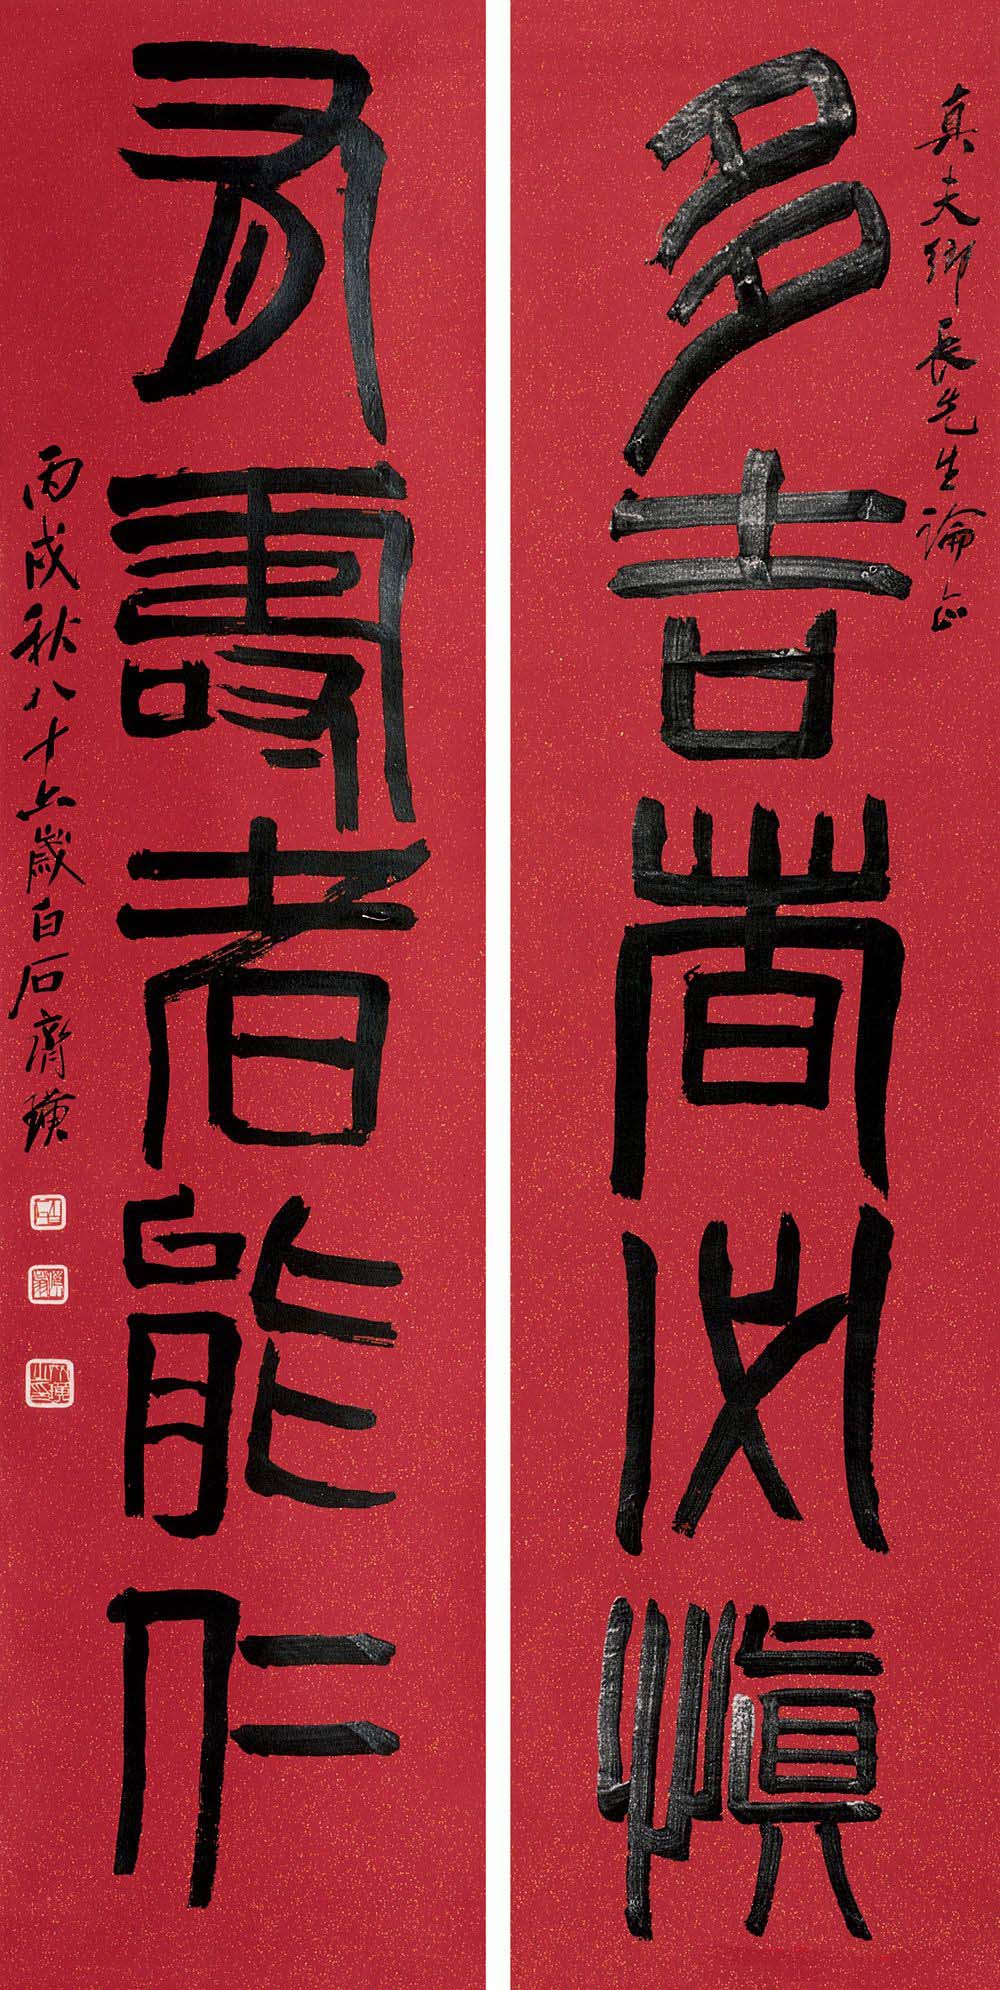 真夫鄉長先生論正
多吉必慎
有壽者能仁
丙戌秋八十六歲白石齊璜